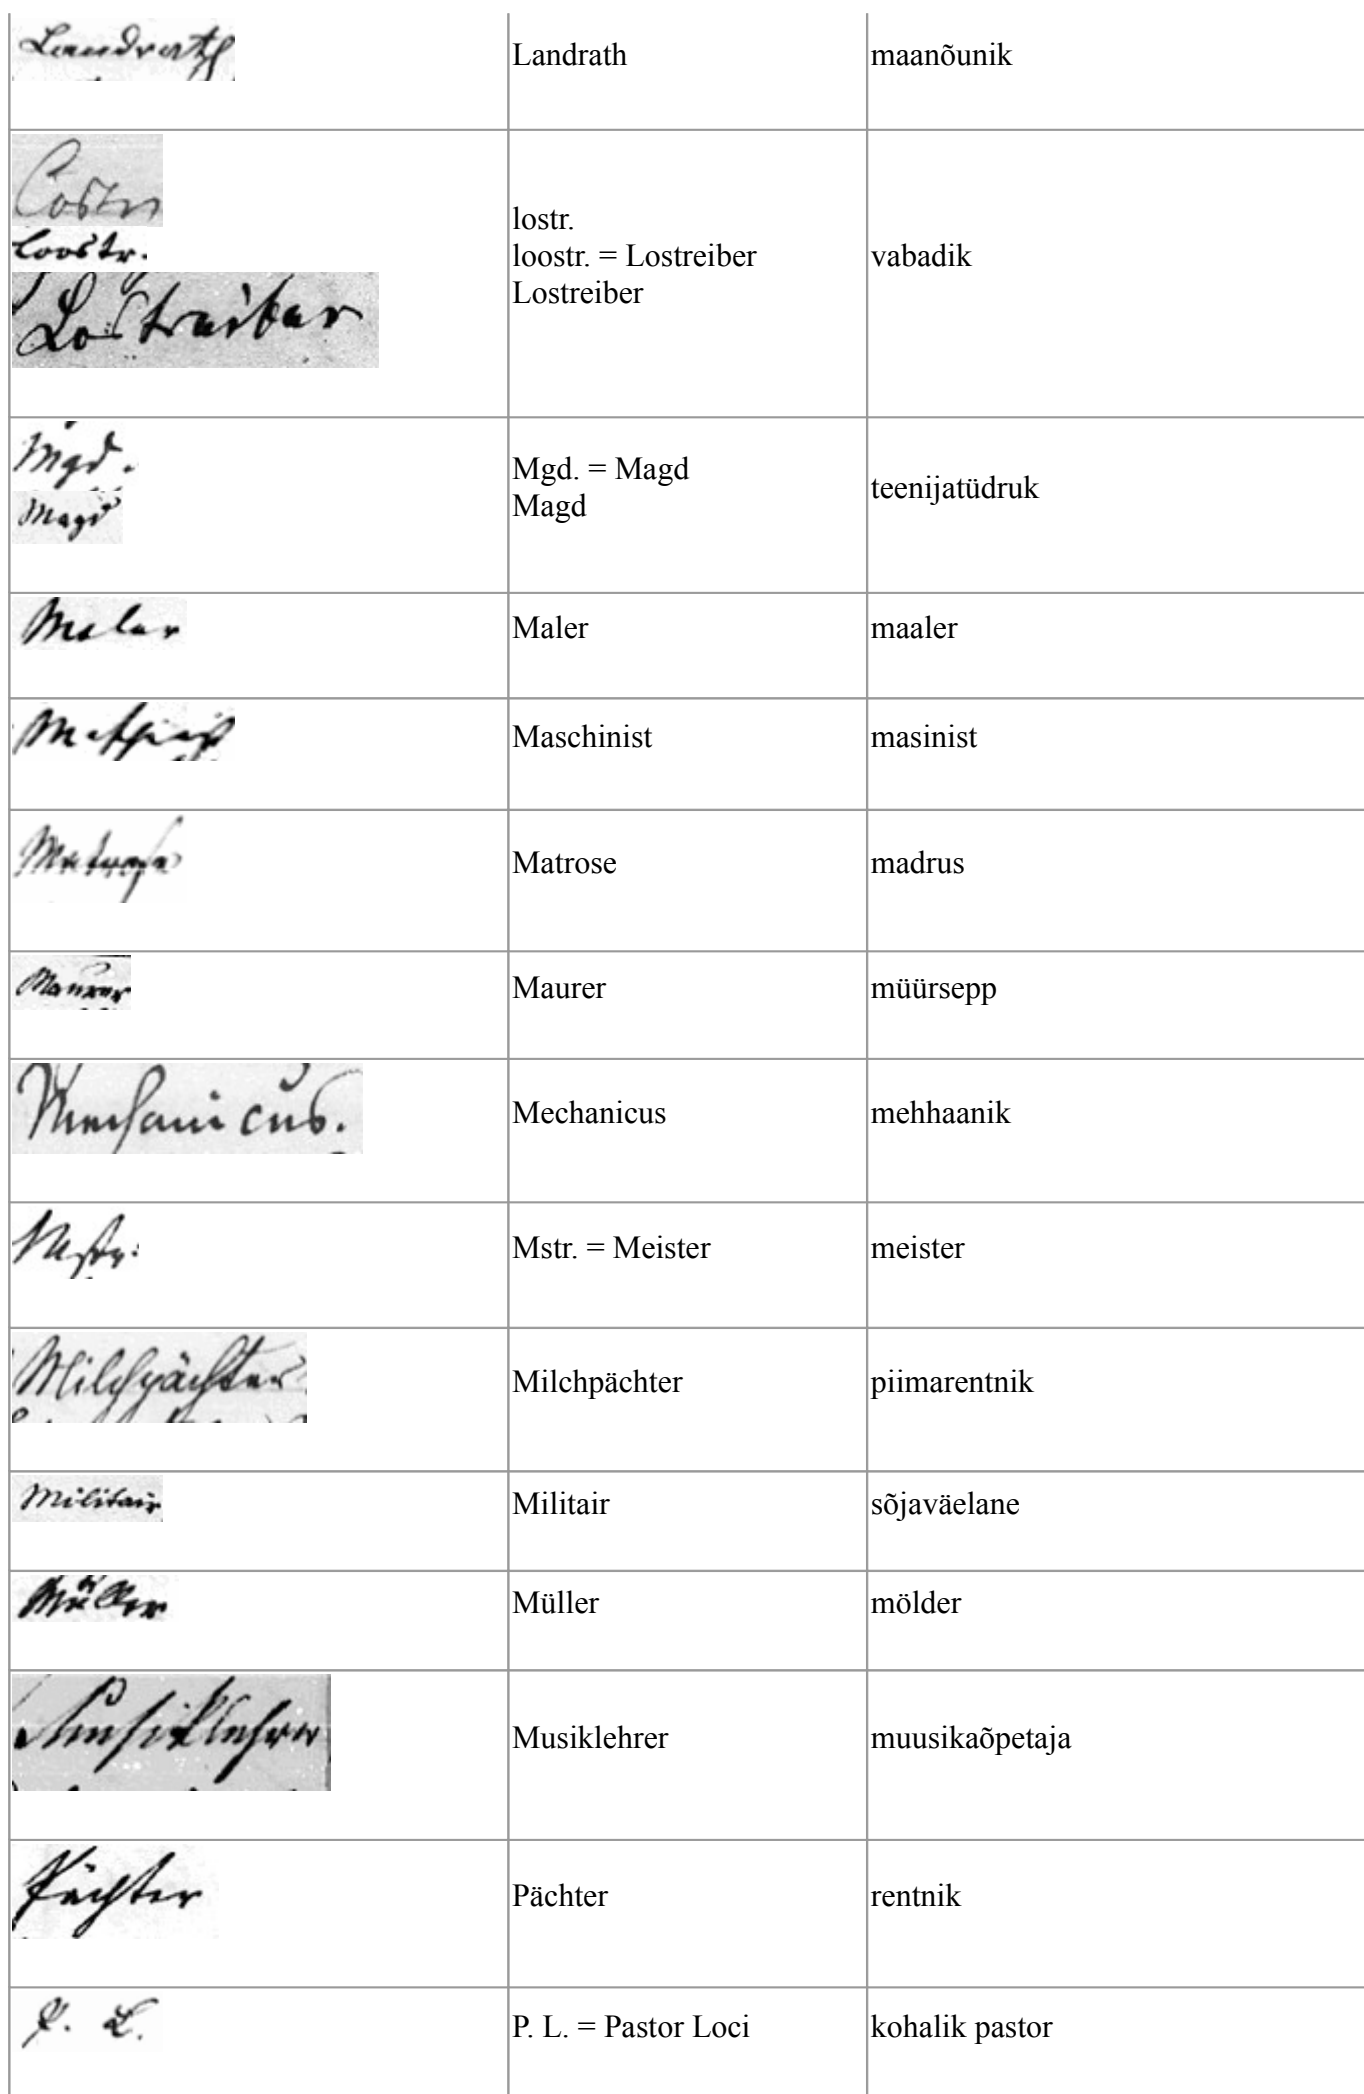 Landrath Landrath maanõunik
Lostr
loostr.
Lostreiber
lostr.
loostr. = Lostreiber
Lostreiber
vabadik
Mgd.
Magd
Mgd. = Magd
Magd
teenijatüdruk
Maler Maler maaler
Maschinist Maschinist masinist
Matrose Matrose madrus
Maurer Maurer müürsepp
Mechanicus. Mechanicus mehhaanik
Mstr. Mstr. = Meister meister
Milchpächter Milchpächter piimarentnik
Militair Militair sõjaväelane
Müller Müller mölder
Musiklehrer Musiklehrer muusikaõpetaja
Pächter Pächter rentnik
P. L. P. L. = Pastor Loci kohalik pastor